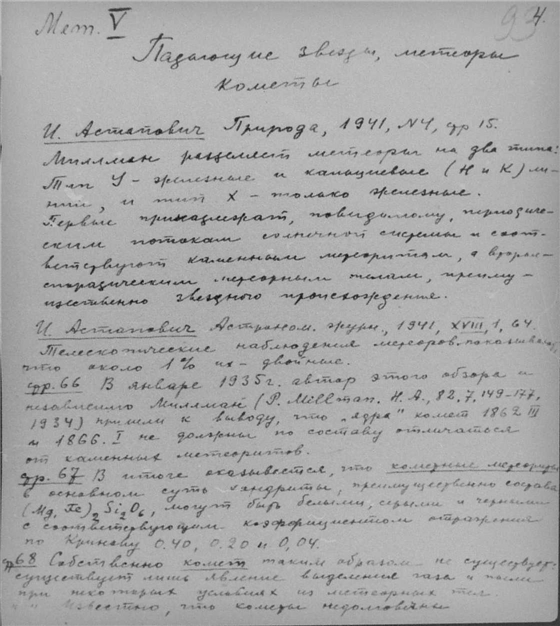 Мет. V
4.
Падающие звезды, метеоры
кометы
И. Астапович Природа, 1941, N4, стр 15.
Миллман разделяет метеоры на два типа:
Тип Y - железные и кальциевые (H и K) ли-
нии, и тип X - только железные.
Первые принадлежат, повидимому, периодиче-
ским потокам солнечной системы и соот-
ветствуют каменным метеоритам, а вторые -
спорадическим метеорным телам, преиму-
щественно звездного происхождения.
И. Астапович Астроном. журн., 1941, XVIII, 1, 64.
Телескопические наблюдения метеоров показывают,
что около 1% их - двойные.
стр. 66 В январе 1935г. автор этого обзора и
независимо Миллман (P. Millman. H. A., 82, 7, 149-177,
1934) пришли к выводу, что "ядра" комет 1862 III
и 1866. I не должны по составу отличаться
от каменных метеоритов.
стр. 67 В итоге оказывается, что кометные метеориты
в основном суть хондриты, преимущественно состава
(Mg, Fe)2 Si2O6, могут быть белыми, серыми и черными
с соответствующим коэффициентом отражения
по Кринову 0.40, 0.20 и 0,04.
стр 68 Собственно комет таким образом не существует:
существует лишь явление выделения газа и пыли
при некоторых условиях из метеорных тел.
известно, что кометы недолговечны